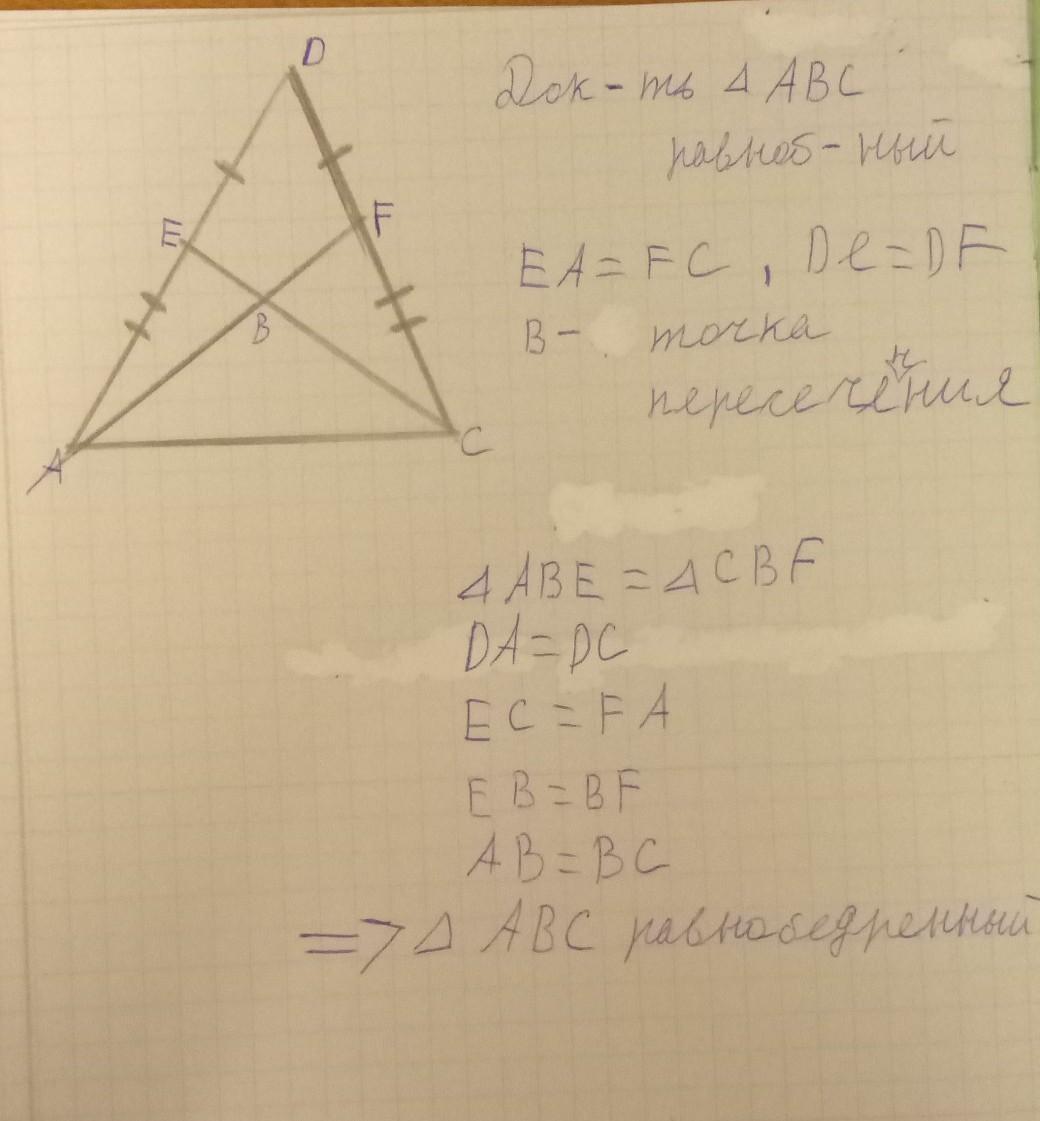 D
Док-ть △ ABC
равноб-ный
F
E
EA = FC , De = DF
B
B - точка
н
пересечения
A
C
△ ABE = △ CBF
DA = DC
EC = FA
EB = BF
AB = BC
=> △ ABC равнобедренный